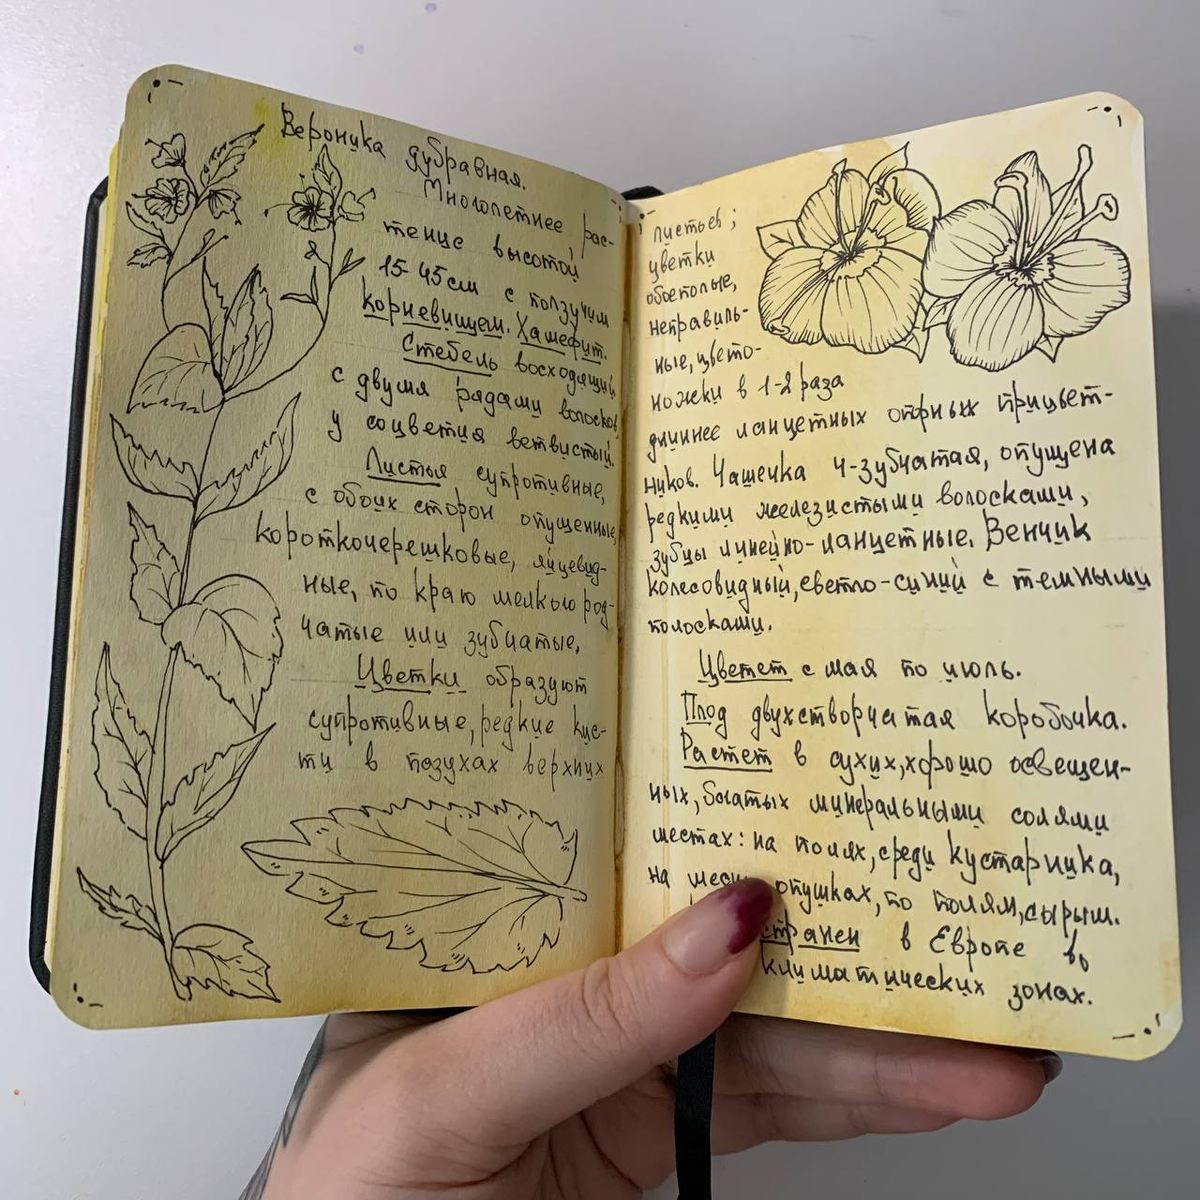 Вероника дубравная.
Многолетнее рас-
тение высотой
15-45см с ползучим
корневищем. Хамефит.
Стебель восходящий
с двумя рядами волосков,
у соцветия ветвистый.
Листья супротивные,
с обоих сторон опушенные,
короткочерешковые, яйцевид-
ные, по краю мелкогород-
чатые или зубчатые.
Цветки образуют
супротивные, редкие кис-
ти в пазухах верхних
листьев;
цветки
обоеполые,
неправиль-
ные, цвето-
ножки в 1-2 раза
длиннее ланцетных опорных прицвет-
ников. Чашечка 4-зубчатая, опущена
редкими железистыми волосками,
зубцы линейно-ланцетные. Венчик
колесовидный, светло-синий с темными
полосками.
Цветет с мая по июль.
Плод двухстворчатая коробочка.
Растет в сухих, хорошо освещен-
ных, богатых минеральными солями
местах: на полях, среди кустарника,
на опушках, по полям, сырым.
в Европе во
климатических зонах.